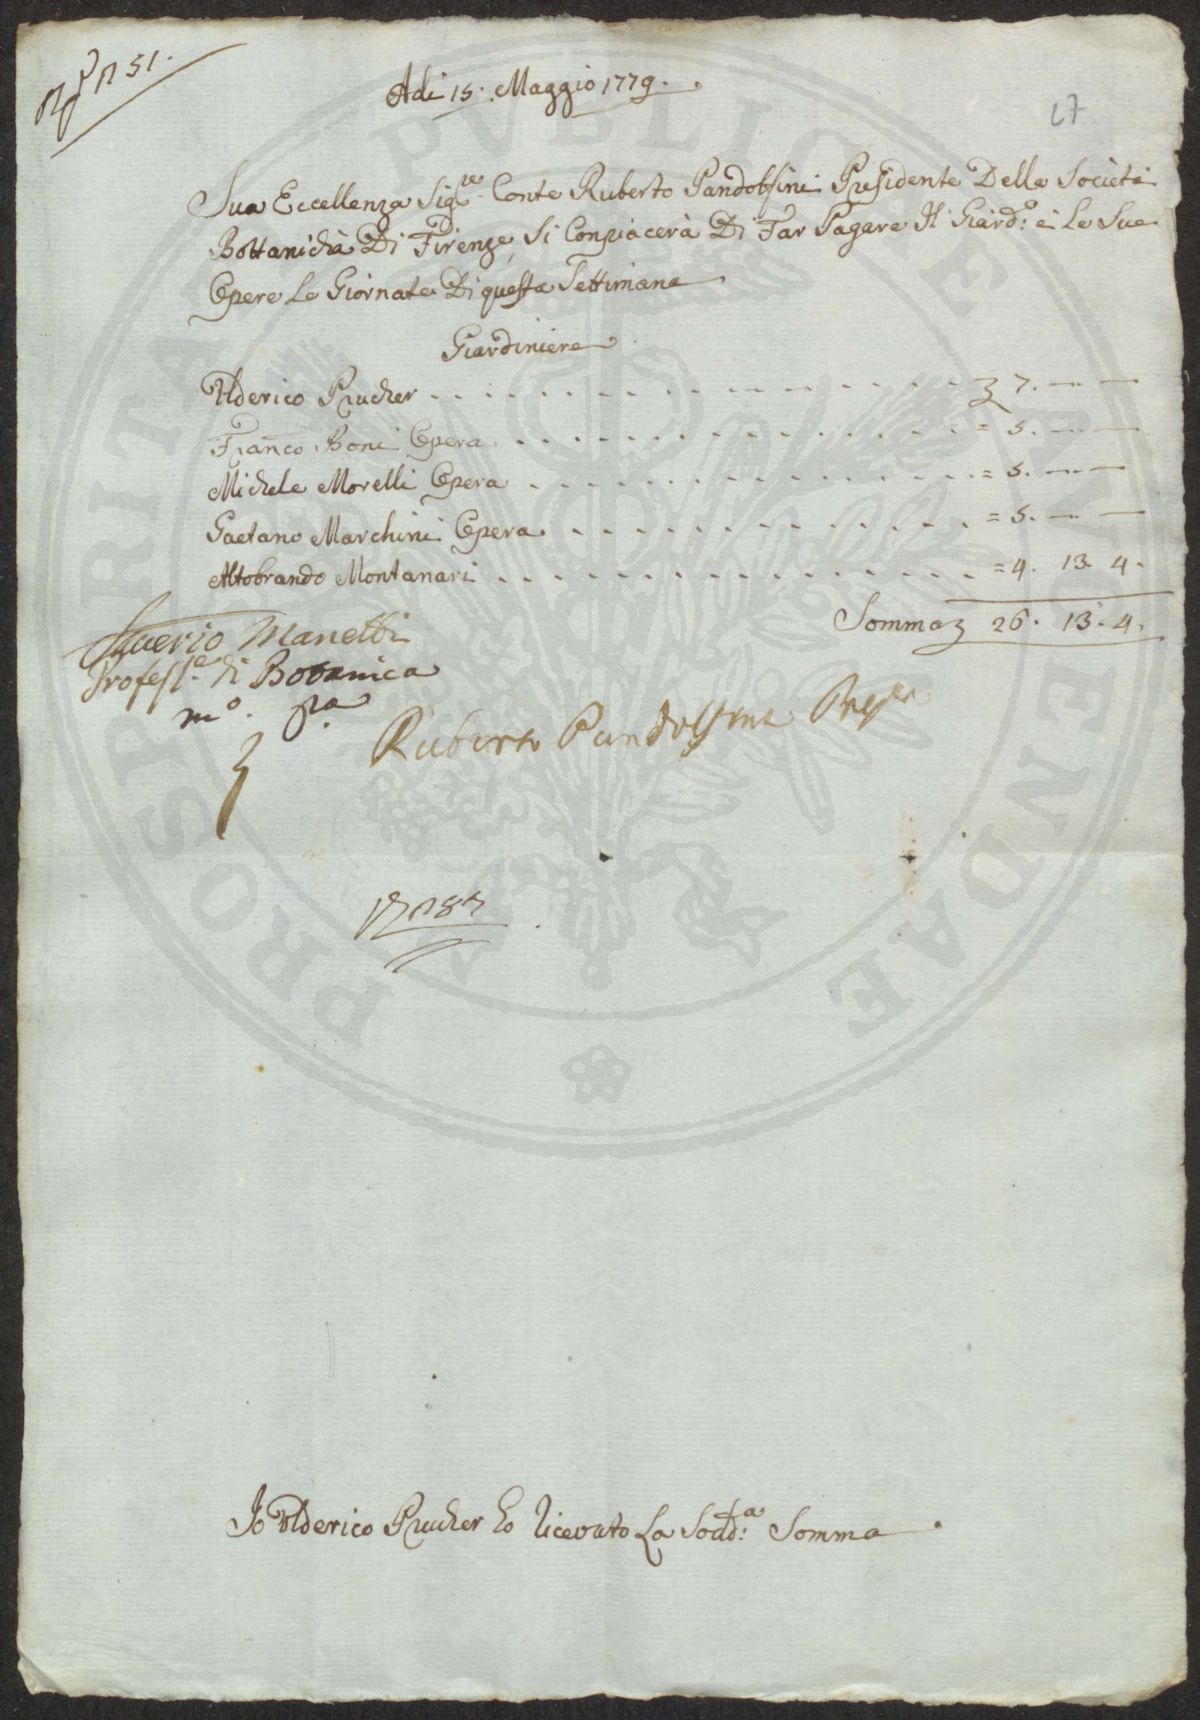 n 51.
Adi 15. Maggio 1779.
27
Sua Eccellenza Sig.re Conte Ruberto Pandolfini Presidente Della Società
Bottanicha Di Firenze, Si Conpiacerà Di Far Pagare Il Giard:o e Le Sue
Opere Le Giornate Di questa Settimana
Giardiniere
Ulderico Prucher . . . . . . . . . . . . . . . . 7. — —
Franco Boni Opera . . . . . . . . . . . . . . = 5. — —
Michele Morelli Opera . . . . . . . . . . . . . = 5. — —
Gaetano Marchini Opera . . . . . . . . . . . . = 5. — —
Altobrando Montanari . . . . . . . . . . . . . . = 4. 13. 4.
Somma 26. 13. 4.
Saverio Manetti
Profess.e di Botanica
m.o p.a
Ruberto Pandolfini Presi
Io Ulderico Prucher ho ricevuto La Sodd:a Somma
PROSPERITATI PUBLICAE AUGENDAE